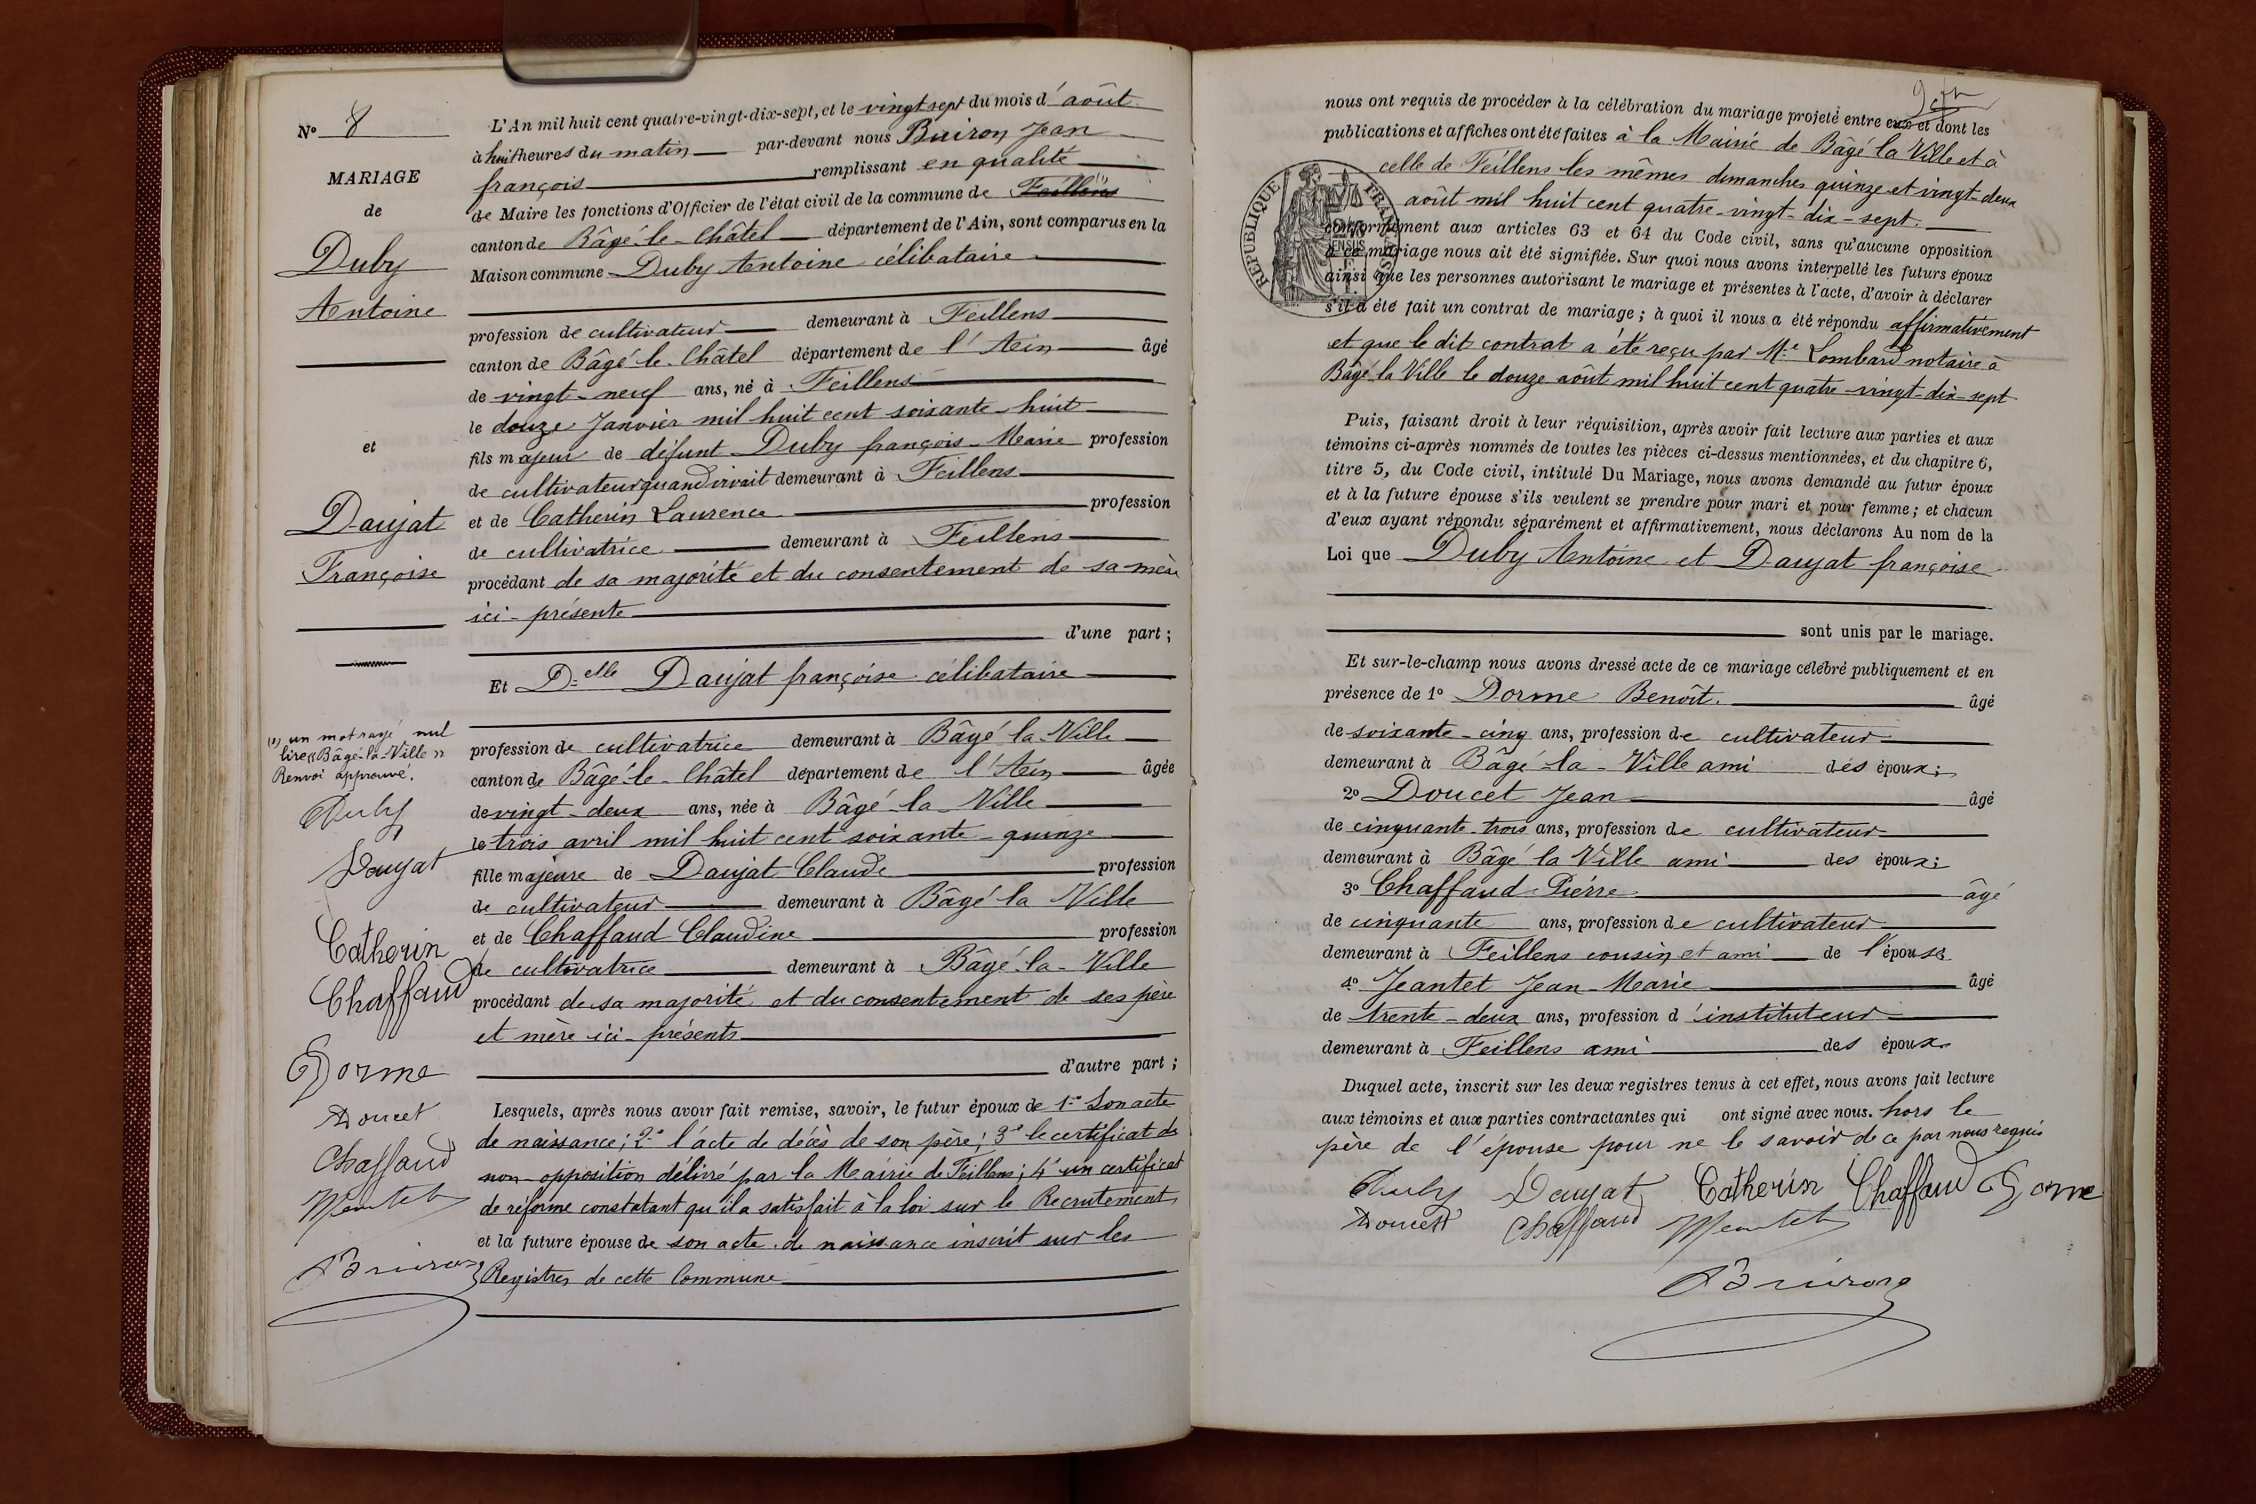 N° 8
MARIAGE
de
Duby
Antoine
et
Daujat
Françoise
(1) un mot rayé nul
lire « Bâgé-la-Ville »
Renvoi approuvé.
Duby
Daujat
Catherin
Chaffaud
Dorme
Doucet
Chaffaud
Jeantet
Buiron
L'An mil huit cent quatre-vingt-dix-sept, et le vingt sept du mois d'août
à huit heures du matin par-devant nous Buiron Jean
françois remplissant en qualité
de Maire les fonctions d'Officier de l'état civil de la commune de Feillens (1)
canton de Bâgé-le-Châtel département de l'Ain, sont comparus en la
Maison commune Duby Antoine célibataire
profession de cultivateur demeurant à Feillens
canton de Bâgé-le-Châtel département de l'Ain âgé
de vingt-neuf ans, né à Feillens
le douze Janvier mil huit cent soixante-huit
fils majeur de défunt Duby françois-Marie profession
de cultivateur quand vivait demeurant à Feillens
et de Catherin Laurence profession
de cultivatrice demeurant à Feillens
procédant de sa majorité et du consentement de sa mère
ici-présente
d'une part ;
Et Delle Daujat françoise célibataire
profession de cultivatrice demeurant à Bâgé la Ville
canton de Bâgé-le-Châtel département de l'Ain âgée
de vingt-deux ans, née à Bâgé-la-Ville
le trois avril mil huit cent soixante-quinze
fille majeure de Daujat Claude profession
de cultivateur demeurant à Bâgé la Ville
et de Chaffaud Claudine profession
de cultivatrice demeurant à Bâgé-la-Ville
procédant de sa majorité et du consentement de ses père
et mère ici-présents
d'autre part ;
Lesquels, après nous avoir fait remise, savoir, le futur époux de 1° Son acte
de naissance ; 2° l'acte de décès de son père ; 3° le certificat de
non-opposition délivré par la Mairie de Feillens ; 4° un certificat
de réforme constatant qu'il a satisfait à la loi sur le Recrutement
et la future épouse de son acte de naissance inscrit sur les
Registres de cette Commune
nous ont requis de procéder à la célébration du mariage projeté entre eux et dont les
publications et affiches ont été faites à la Mairie de Bâgé la Ville et à
celle de Feillens les mêmes dimanches quinze et vingt-deux
août mil huit cent quatre-vingt-dix-sept.
RÉPUBLIQUE FRANÇAISE
conformément aux articles 63 et 64 du Code civil, sans qu'aucune opposition
à ce mariage nous ait été signifiée. Sur quoi nous avons interpellé les futurs époux
ainsi que les personnes autorisant le mariage et présentes à l'acte, d'avoir à déclarer
s'il a été fait un contrat de mariage ; à quoi il nous a été répondu affirmativement
et que le dit contrat a été reçu par Me Lombard notaire à
Bâgé la Ville le douze août mil huit cent quatre-vingt-dix-sept
Puis, faisant droit à leur réquisition, après avoir fait lecture aux parties et aux
témoins ci-après nommés de toutes les pièces ci-dessus mentionnées, et du chapitre 6,
titre 5, du Code civil, intitulé Du Mariage, nous avons demandé au futur époux
et à la future épouse s'ils veulent se prendre pour mari et pour femme ; et chacun
d'eux ayant répondu séparément et affirmativement, nous déclarons Au nom de la
Loi que Duby Antoine et Daujat françoise
sont unis par le mariage.
Et sur-le-champ nous avons dressé acte de ce mariage célébré publiquement et en
présence de 1° Dorme Benoît. âgé
de soixante-cinq ans, profession de cultivateur
demeurant à Bâgé-la-Ville ami des époux ;
2° Doucet Jean âgé
de cinquante-trois ans, profession de cultivateur
demeurant à Bâgé la Ville ami des époux ;
3° Chaffaud Pierre âgé
de cinquante ans, profession de cultivateur
demeurant à Feillens cousin et ami de l'épouse
4° Jeantet Jean-Marie âgé
de trente-deux ans, profession d'instituteur
demeurant à Feillens ami des époux
Duquel acte, inscrit sur les deux registres tenus à cet effet, nous avons fait lecture
aux témoins et aux parties contractantes qui ont signé avec nous. hors le
père de l'épouse pour ne le savoir de ce par nous requis
Duby Daujat Catherin Chaffaud Dorme
Doucet Chaffaud Jeantet
Buiron